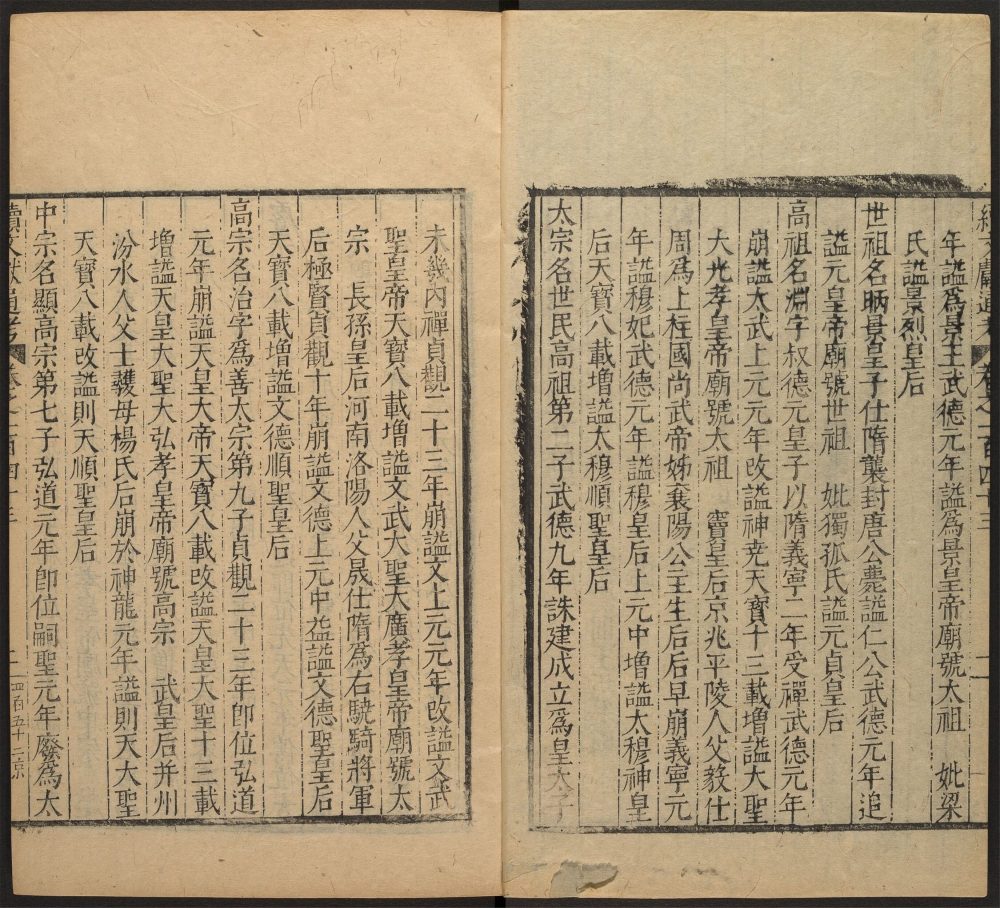 續文獻通考 卷之一百四十三
年謚爲景王武德元年謚爲景皇帝廟號太祖 妣梁
氏謚景烈皇后
世祖名昞景皇子仕隋襲封唐公薨謚仁公武德元年追
謚元皇帝廟號世祖 妣獨孤氏謚元貞皇后
高祖名淵字叔德元皇子以隋義寧二年受禪武德元年
崩謚大武上元元年改謚神尭天寶十三載増謚大聖
大光孝皇帝廟號太祖 竇皇后京兆平陵人父毅仕
周爲上柱國尚武帝姊襄陽公主生后后早崩義寧元
年謚穆妃武德元年謚穆皇后上元中増謚太穆神皇
后天寶八載増謚太穆順聖皇后
太宗名世民高祖第二子武德九年誅建成立爲皇太子
未幾内禪貞觀二十三年崩謚文上元元年改謚文武
聖皇帝天寶八載増謚文武大聖大廣孝皇帝廟號太
宗 長孫皇后河南洛陽人父晟仕隋爲右驍騎將軍
后極賢貞觀十年崩謚文德上元中益謚文德聖皇后
天寶八載増謚文德順聖皇后
高宗名治字爲善太宗第九子貞觀二十三年卽位弘道
元年崩謚天皇大帝天寶八載改謚天皇大聖十三載
増謚天皇大聖大弘孝皇帝廟號高宗 武皇后并州
汾水人父士彠母楊氏后崩於神龍元年謚則天大聖
天寶八載改謚則天順聖皇后
中宗名顯高宗第七子弘道元年卽位嗣聖元年廢爲太
續文獻通考 卷之一百四十三 二 四百五十二